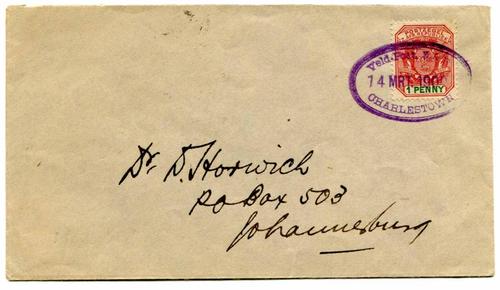 Veld-Post
14 MRT 190
CHARLESTOWN
1 PENNY
Dr. D. Horwich
PO Box 503
Johannesburg